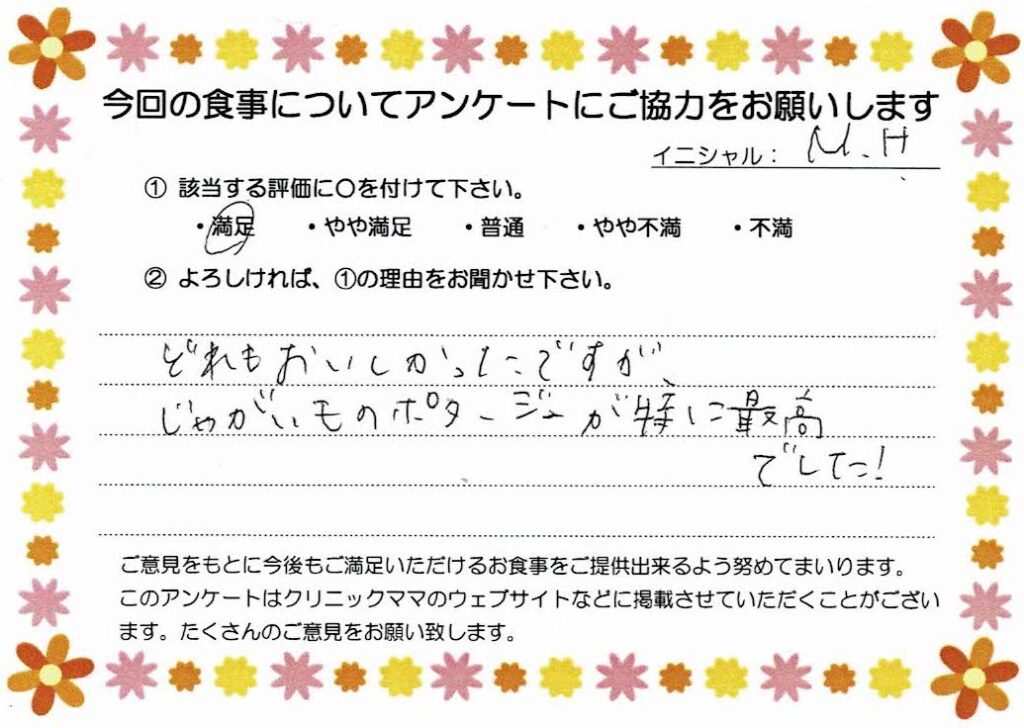 今回の食事についてアンケートにご協力をお願いします
イニシャル： M.H
① 該当する評価に〇を付けて下さい。
・満足 ・やや満足 ・普通 ・やや不満 ・不満
② よろしければ、①の理由をお聞かせ下さい。
どれもおいしかったですが、
じゃがいものポタージュが特に最高
でした!
ご意見をもとに今後もご満足いただけるお食事をご提供出来るよう努めてまいります。
このアンケートはクリニックママのウェブサイトなどに掲載させていただくことがござい
ます。たくさんのご意見をお願い致します。